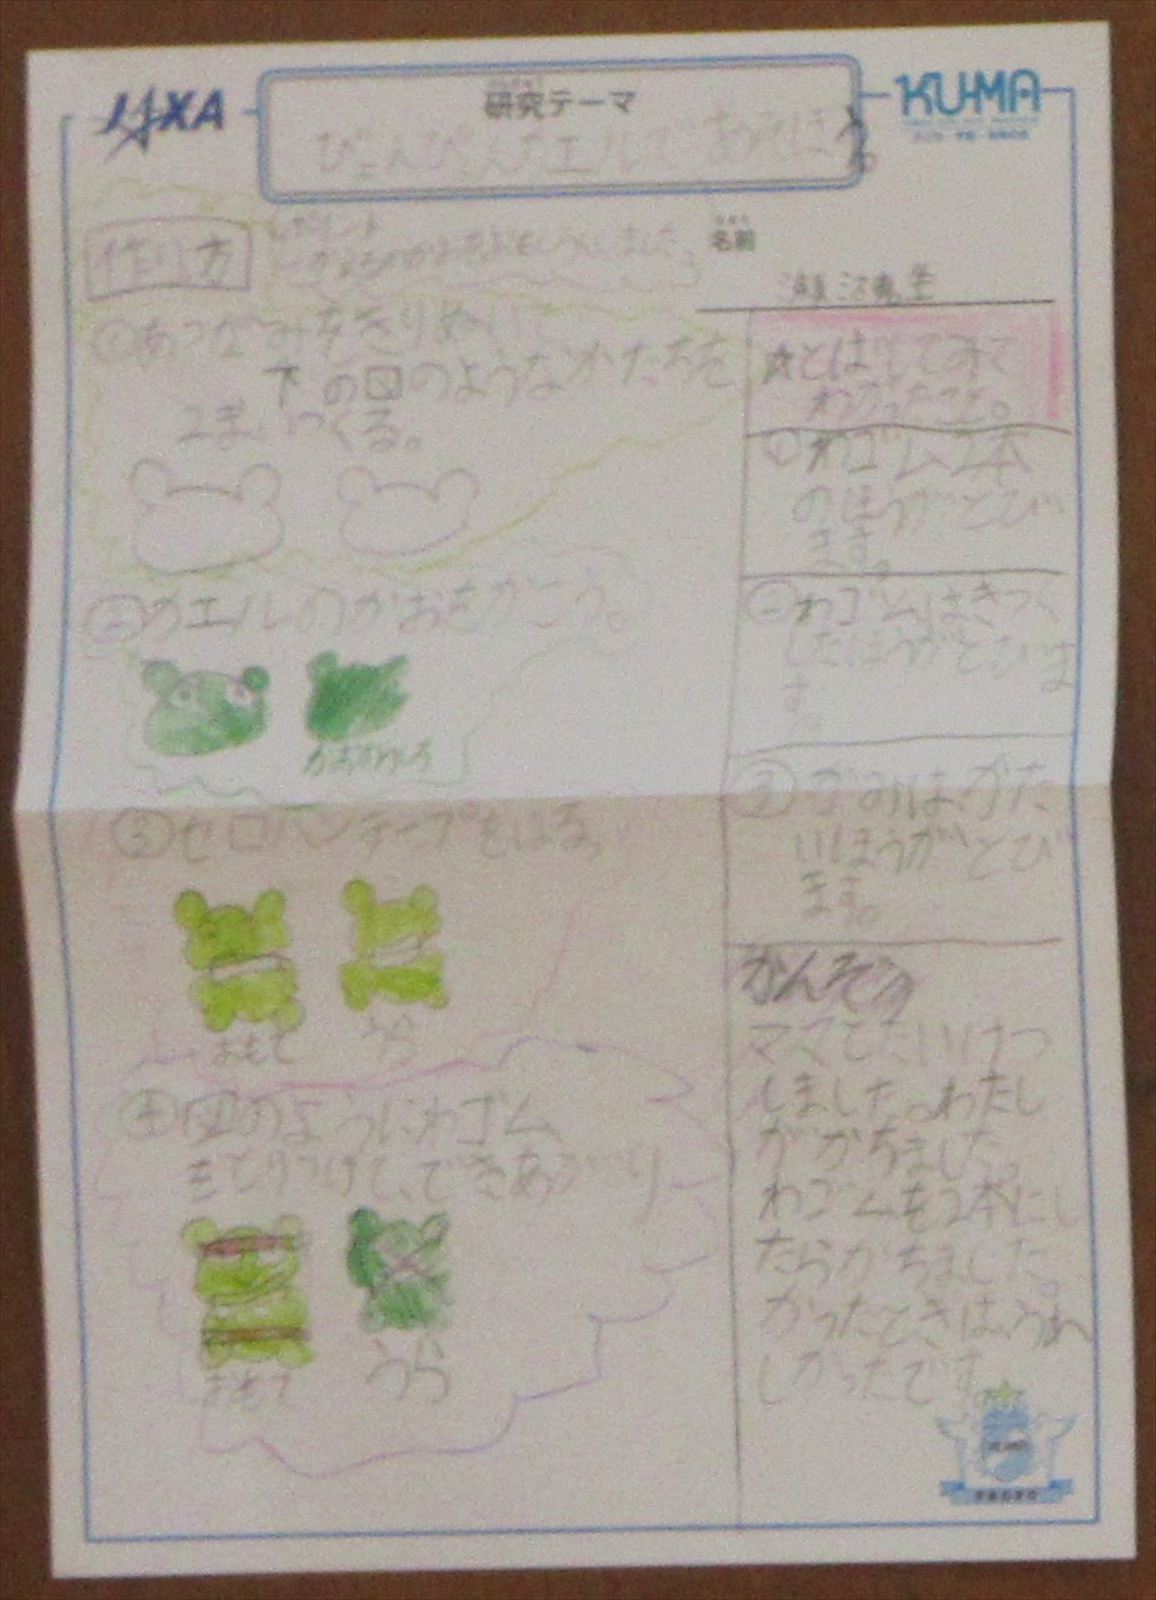 JAXA
研究テーマ
KU-MA
ぴょんぴょんカエルであそぼう。
作り方
ポイント
名前
①あつがみをきりぬいて
下の図のようなかたちを
2まいつくる。
②カエルのかおをかこう。
③セロハンテープをはる。
おもて
うら
④図のようにわゴム
をとりつけて、できあがり
おもて
うら
☆とばしてみて
わかったこと。
①わゴム2本
のほうがとび
ます。
②わゴムはきつく
したほうがとびま
す。
③かみは、かた
いほうがとび
ます。
かんそう
ママとたいけつ
しました。わたし
がかちました。
わゴムを2本にし
たらかちました。
かったときは、うれ
しかったです。